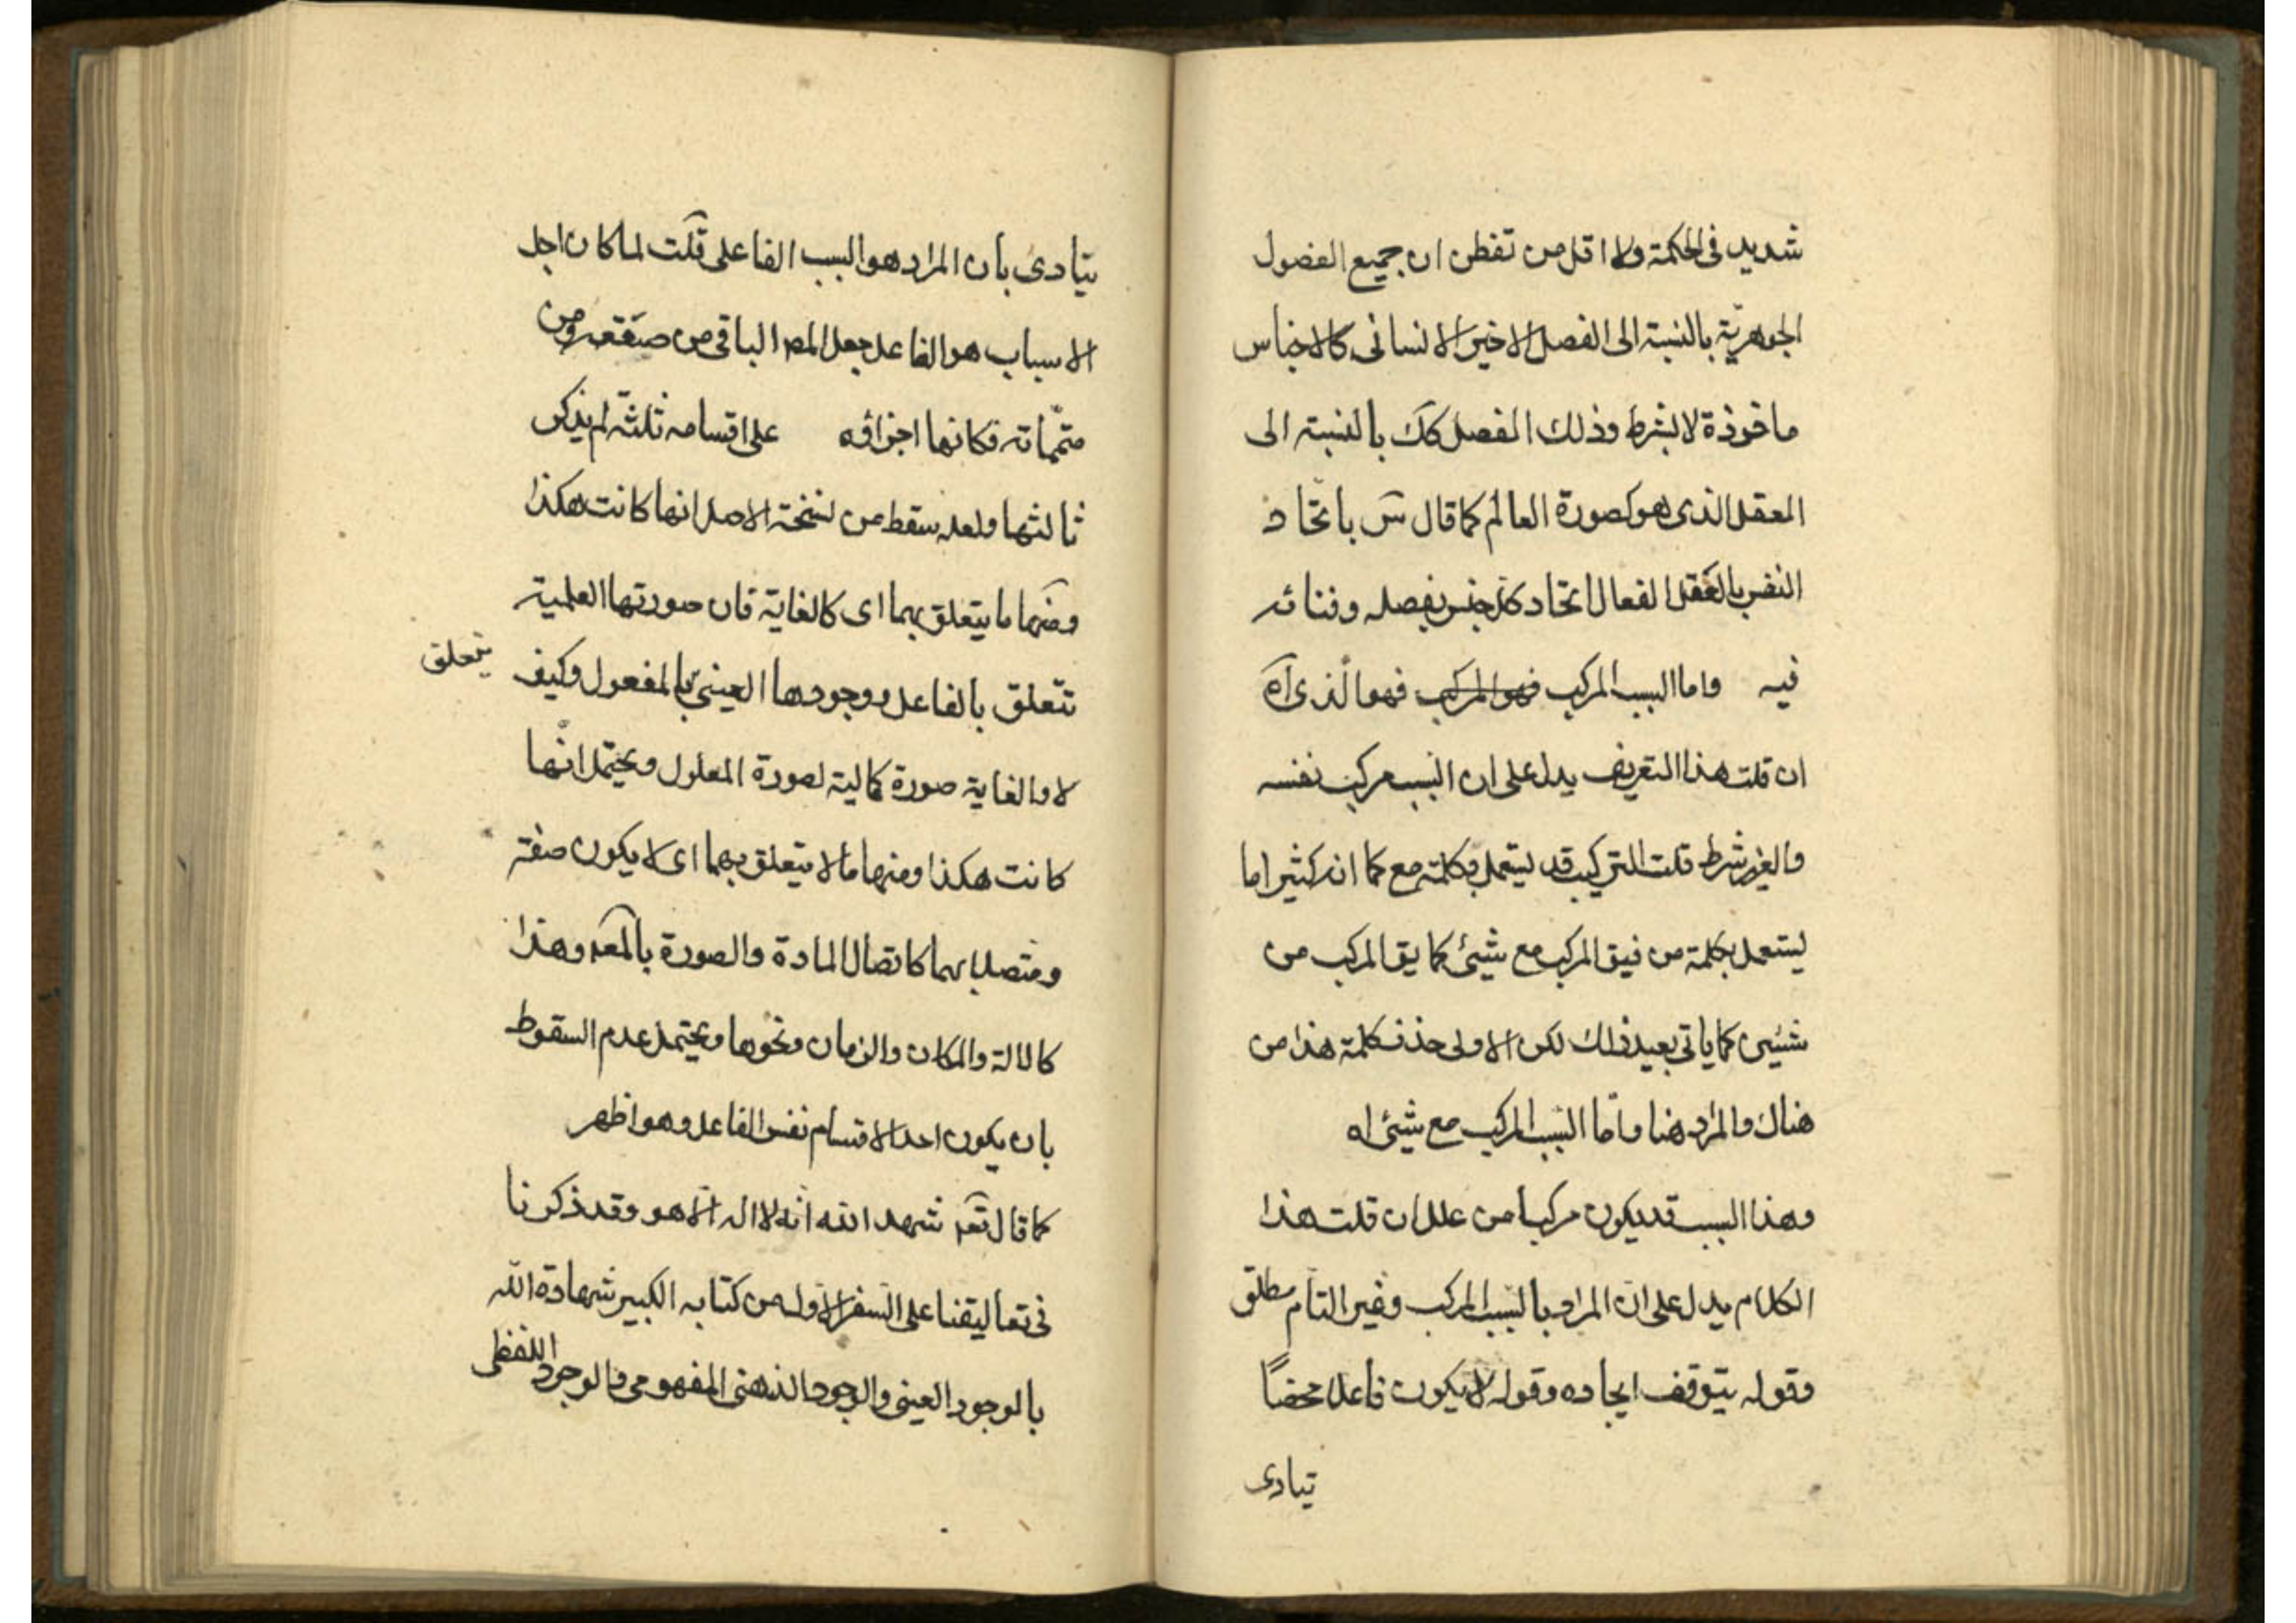 شديد فى الحكمة ولا اقل من تفطن ان جميع الفصول
الجوهريّة بالنسبة الى الفصل الاخير الانسانى كالاجناس
ماخوذة لا بشرط وذلك الفصل كك بالنسبة الى
العقل الذى هو كصورة العالم كما قال س باتحاد
النفس بالعقل الفعال اتحاد كل جنس بفصله وفنائه
فيه واما السبب المركب فهو المركب فهو الّذى آه
ان قلت هذا التعريف يدل على ان السبب مركب نفسه
والغير شرط قلت التركيب قد يستعمل بكلمة مع كما انه كثيرا ما
يستعمل بكلمة من فيق المركب مع شيئ كما يق المركب من
شيئين كما ياتى بعيد ذلك لكن الاولى حذف كلمة هذا من
هناك والمراد هنا وامّا السبب المركب مع شيئ اه
وهذا السبب قد يكون مركبا من علل ان قلت هذا
الكلام يدل على ان المراد بالسبب المركب وغير التام مطلق
وقوله يتوقف ايجاده وقوله لا يكون فاعلا محضاً
تيادى
يتيادى بأن المراد هو السبب الفاعلى قلت لما كان اجل
الاسباب هو الفاعل جعل المص الباقى من صقعه ومن
متمّماته فكانها اجزاؤه على اقسامه ثلثة لم يذكر
ثالثها ولعله سقط من نسخة الاصل انها كانت هكذا
ومنها ما يتعلق بهما اى كالغاية فان صورتها العلمية
تتعلق بالفاعل ووجودها العينىّ بالمفعول وكيف يتعلق
لا والغاية صورة كمالية لصورة المعلول ويحتمل انّها
كانت هكذا ومنها ما لا يتعلق بهما اى لا يكون صفة
ومتصلا بهما كاتصال المادة والصورة بالمعه وهذا
كالالة والمكان والزمان ونحوها ويحتمل عدم السقوط
بان يكون احد الاقسام نفس الفاعل وهو اظهر
كما قال تعه شهد الله انه لا اله الّا هو وقد ذكرنا
فى تعاليقنا على السفر الاول من كتابه الكبير شهادة الله
بالوجود العينى والوجود الذهنى المفهومى والوجود اللفظى